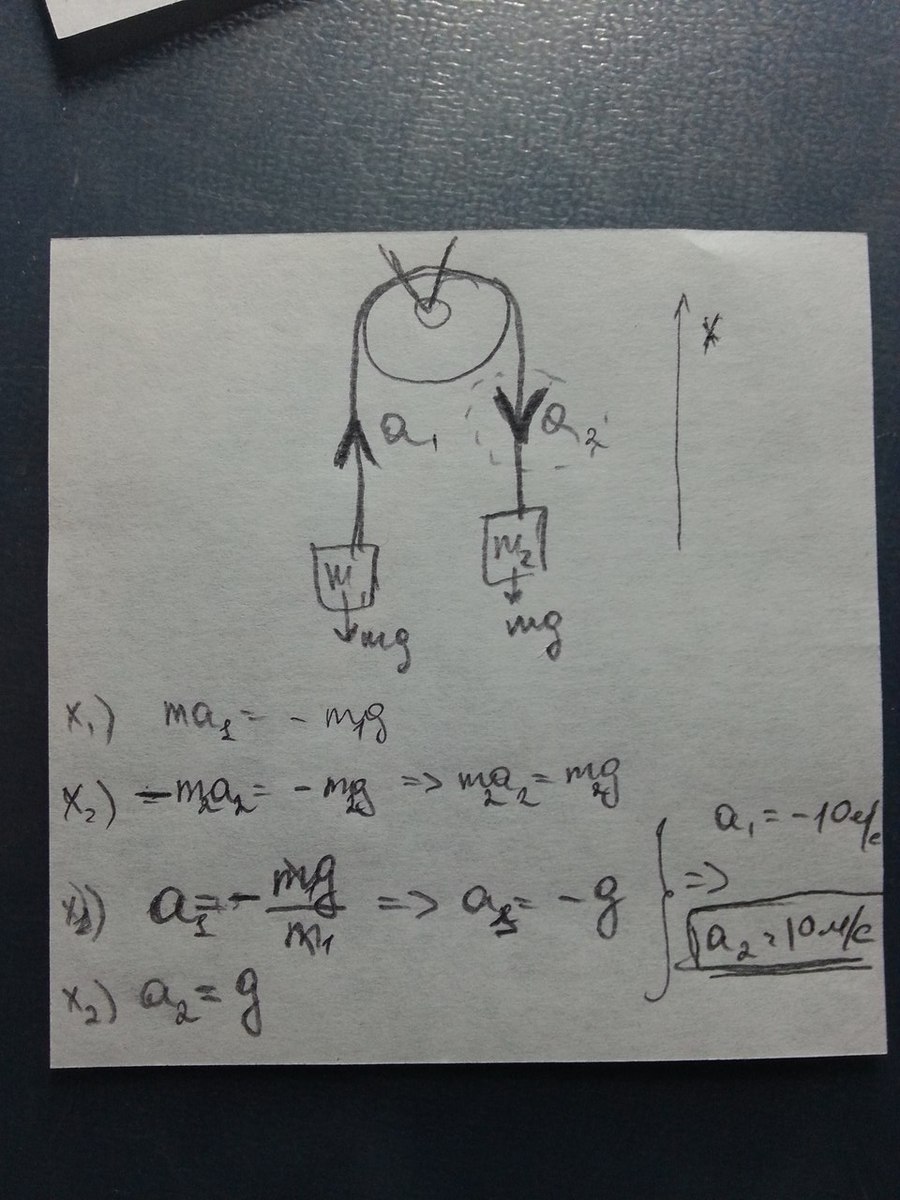 x
a₁
a₂
m₁
m₂
mg
mg
x₁) ma₁ = - m₁g
x₂) -m₂a₂ = - m₂g => m₂a₂ = m₂g
a₁ = - m₁g/m₁ => a₁ = -g
x₂) a₂ = g
=>
a₁ = -10м/с
a₂ = 10м/с